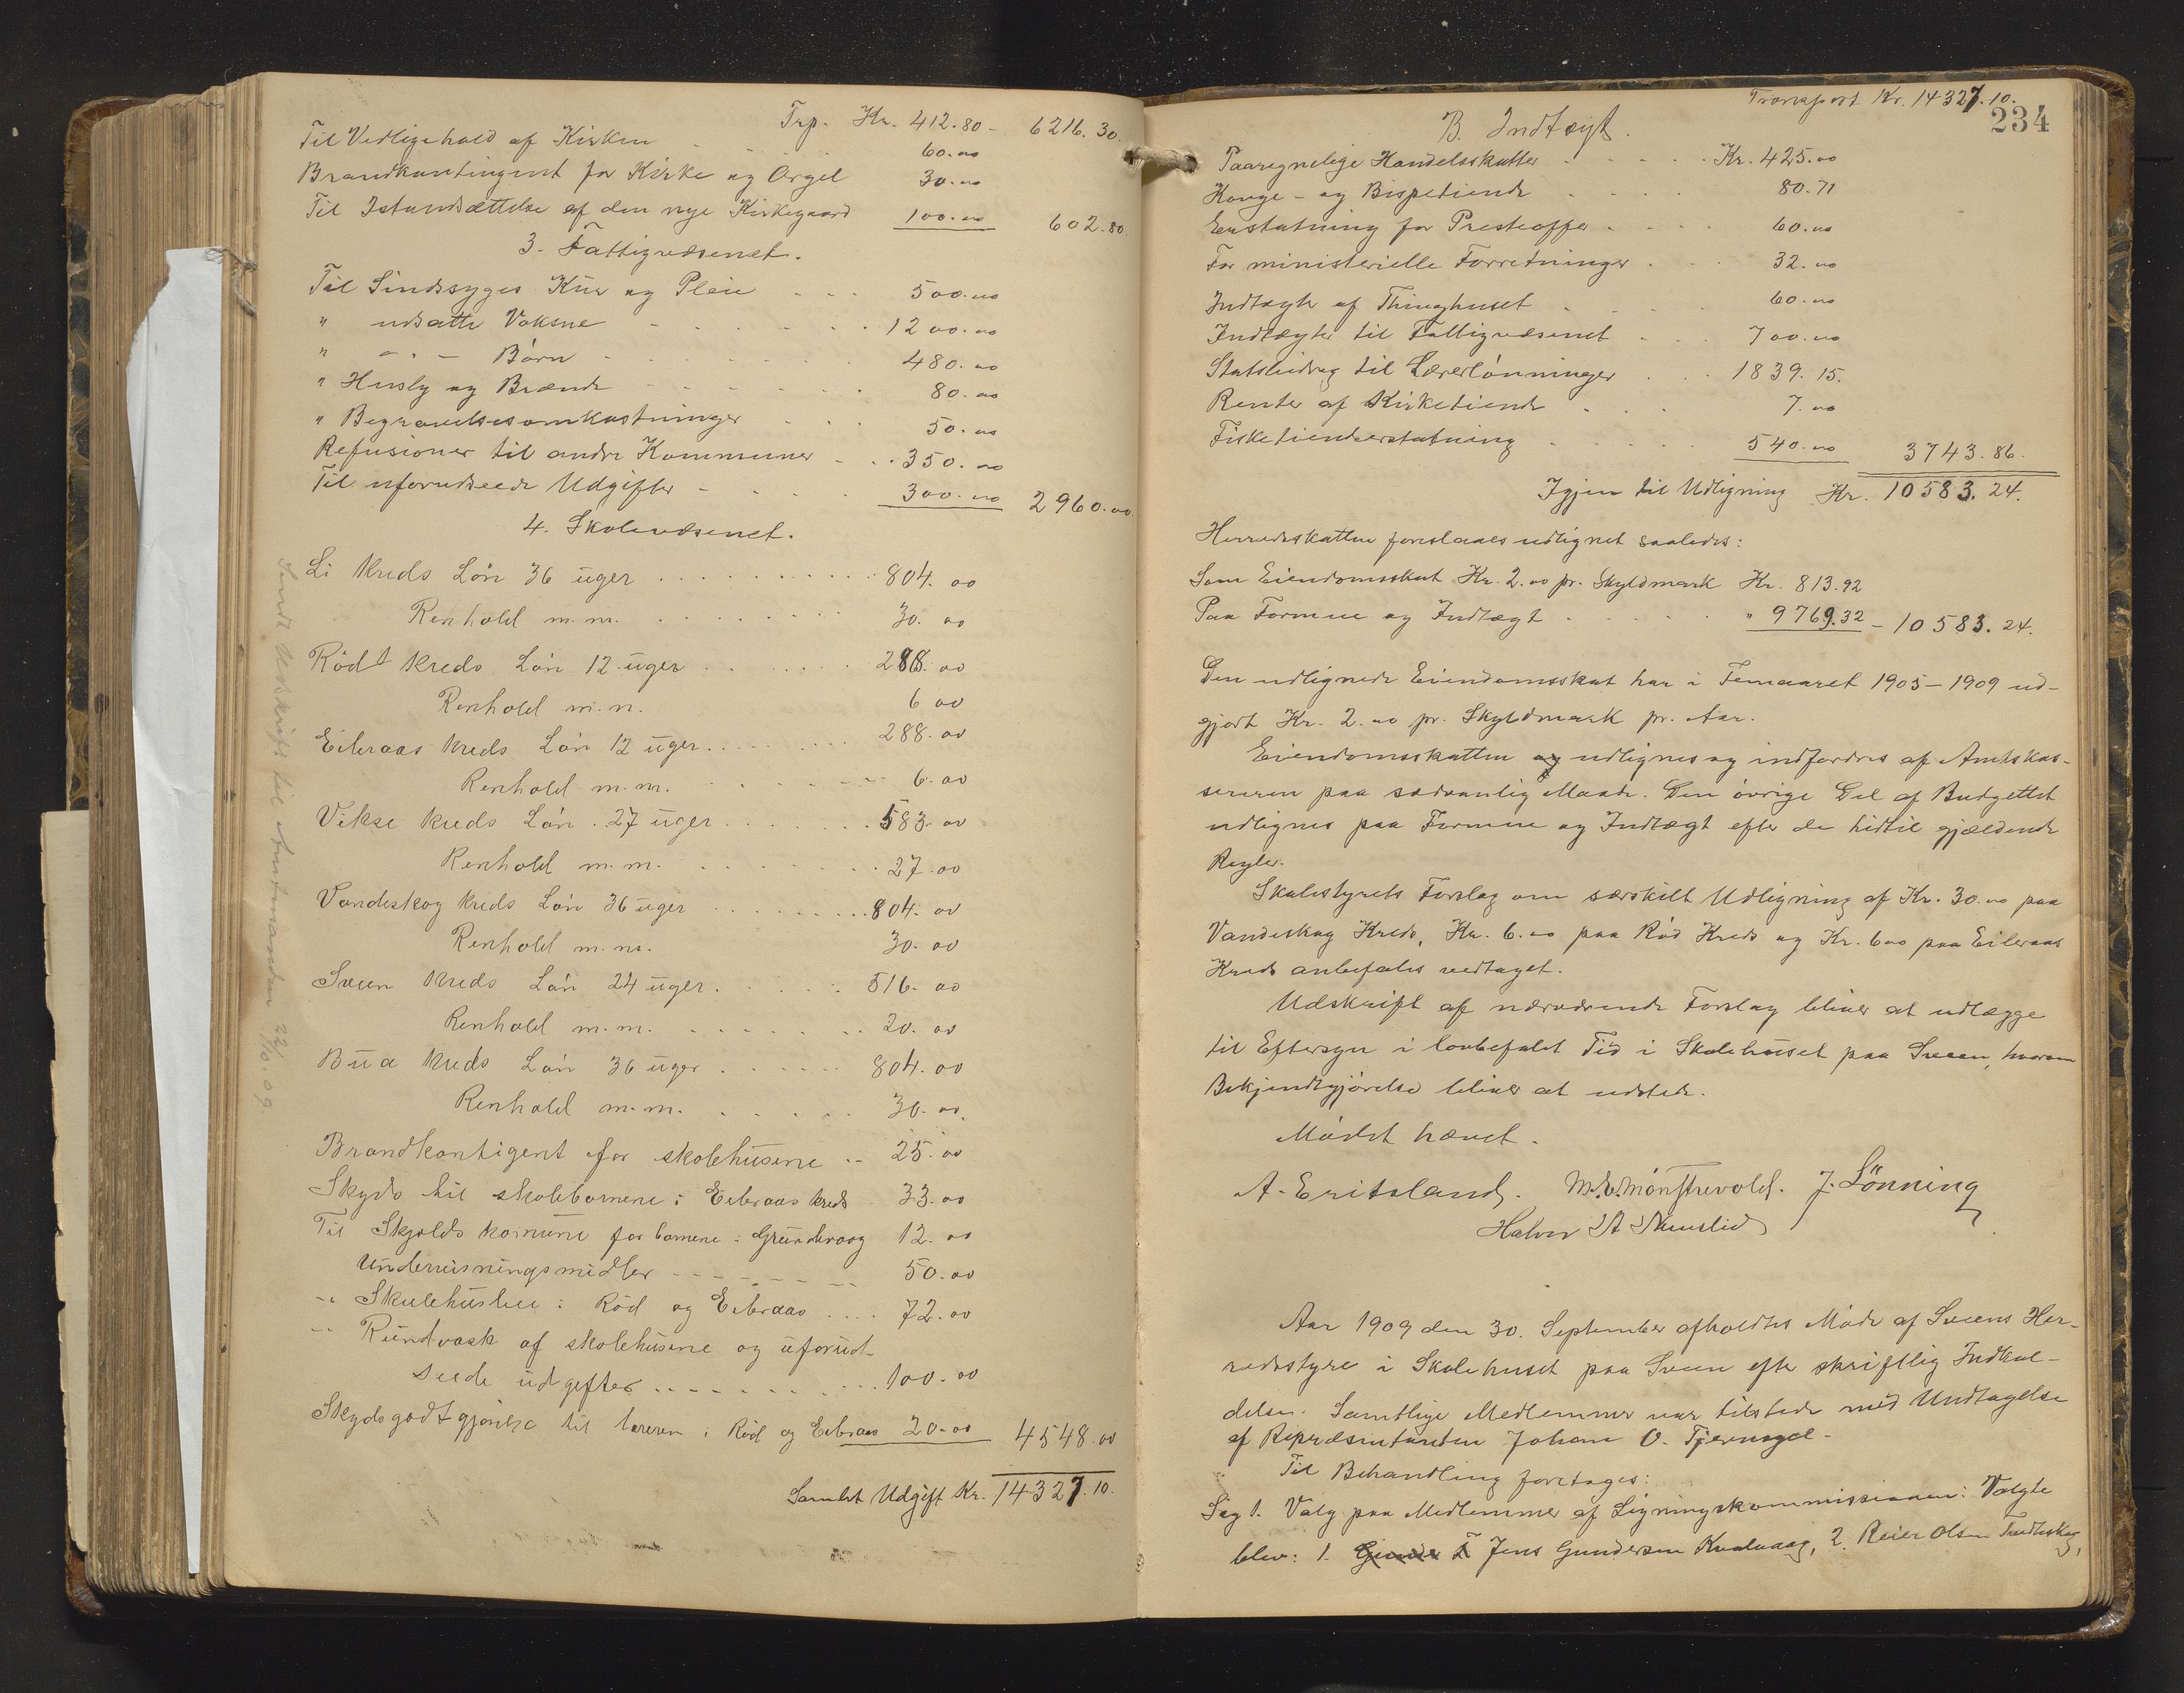 Trp. Kr. 412.80 - 6216.30.
Til Vedligehold af Kirken 60.00
Brandkontingent for Kirke og Orgel 30.00
Til Istandsættelse af den nye Kirkegaard 100.00 602.80.
3. Fattigvæsenet.
Til Sindssyges Kur og Pleie 500.00
" udsatte Voksne 1200.00
" - " - Børn 480.00
" Husly og Brænde 80.00
" Begravelsesomkostninger 50.00
Refusioner til andre Kommuner 350.00
Til uforudseede Udgifter 300.00 2960.00
4. Skolevæsenet.
Li Kreds Løn 36 uger 804.00
Renhold m.m. 30.00
Rød Kreds Løn 12 uger 288.00
Renhold m.m. 6 00
Eileraas Kreds Løn 12 uger 288.00
Renhold m.m. 6.00
Vikse Kreds Løn 27 uger 583.00
Renhold m.m. 27.00
Vandeskog Kreds Løn 36 uger 804.00
Renhold m.m. 30.00
Sveen Kreds Løn 24 uger 516.00
Renhold m.m. 20.00
Bua Kreds Løn 36 uger 804.00
Renhold m.m. 30.00.
Brandkontigent for skolehusene 25.00
Skyds til skolebørnene i Eileraas kreds 33.00
Til Skjolds komune for børnene i Grindevaag 12.00
Undervisningsmidler 50.00
-" Skulehusleie i Rød og Eileraas 72.00
-" Rundvask af skolehusene og uforud-
seede udgifter 100.00
Skydsgodtgjørelse til læreren i Rød og Eileraas 20.00 4548.00
Samlet Udgift Kr. 14327.10.
Sendt Udskrift til Amtmanden 22/10.09
Transport Kr. 14327.10.
234
B. Indtægt.
Paaregnelige Handelsskatter Kr. 425.00
Konge- og Bispetiende 80.71
Erstatning for Presteoffer 60.00
For ministerielle Forretninger 32.00
Indtægt af Thinghuset 60.00
Indtægter til Fattigvæsenet 700.00
Statsbidrag til Lærerlønninger 1839.15.
Renter af Kirketiende 7.00
Fisketiendeerstatning 540.00 3743.86.
Igjen til Udligning Kr. 10583.24.
Herredsskatten foreslaaes udlignet saaledes:
Som Eiendomsskat Kr. 2.00 pr. Skyldmark Kr. 813.92
Paa Formue og Indtægt " 9769.32 - 10583.24.
Den udlignede Eiendomsskat har i Femaaret 1905-1909 ud-
gjort Kr. 2.00 pr. Skyldmark pr. Aar.
Eiendomsskatten og udlignes og indfordres af Amtskas-
sereren paa sædvanlig Maade. Den øvrige Del af Budgettet
udlignes paa Formue og Indtægt efter de hidtil gjældende
Regler.
Skolestyrets Forslag om særskilt Udligning af Kr. 30.00 paa
Vandeskog Kreds, Kr. 6.00 paa Rød Kreds og Kr. 6.00 paa Eileraas
Kreds anbefales vedtaget.
Udskrift af nærværende Forslag bliver at udlægge
til Eftersyn i lovbefalet Tid i Skolehuset paa Sveen, hvorom
Bekjendtgjørelse bliver at udstede.
Mødet hævet.
A. Eritsland. M. O. Mønstrevold. J. Lönning
Halvor A
Aar 1909 den 30. September afholdtes Møde af Sveens Her-
redsstyre i Skolehuset paa Sveen efter skriftlig Indkal-
delse. Samtlige Medlemmer var tilstede med Undtagelse
af Repræsentanten Johan O. Tjernagel.
Til Behandling foretages:
Sag 1. Valg paa Medlemmer af Ligningskommissionen: Valgte
blev: 1. Jens Gundersen Kvalvaag, 2. Reier Olsen